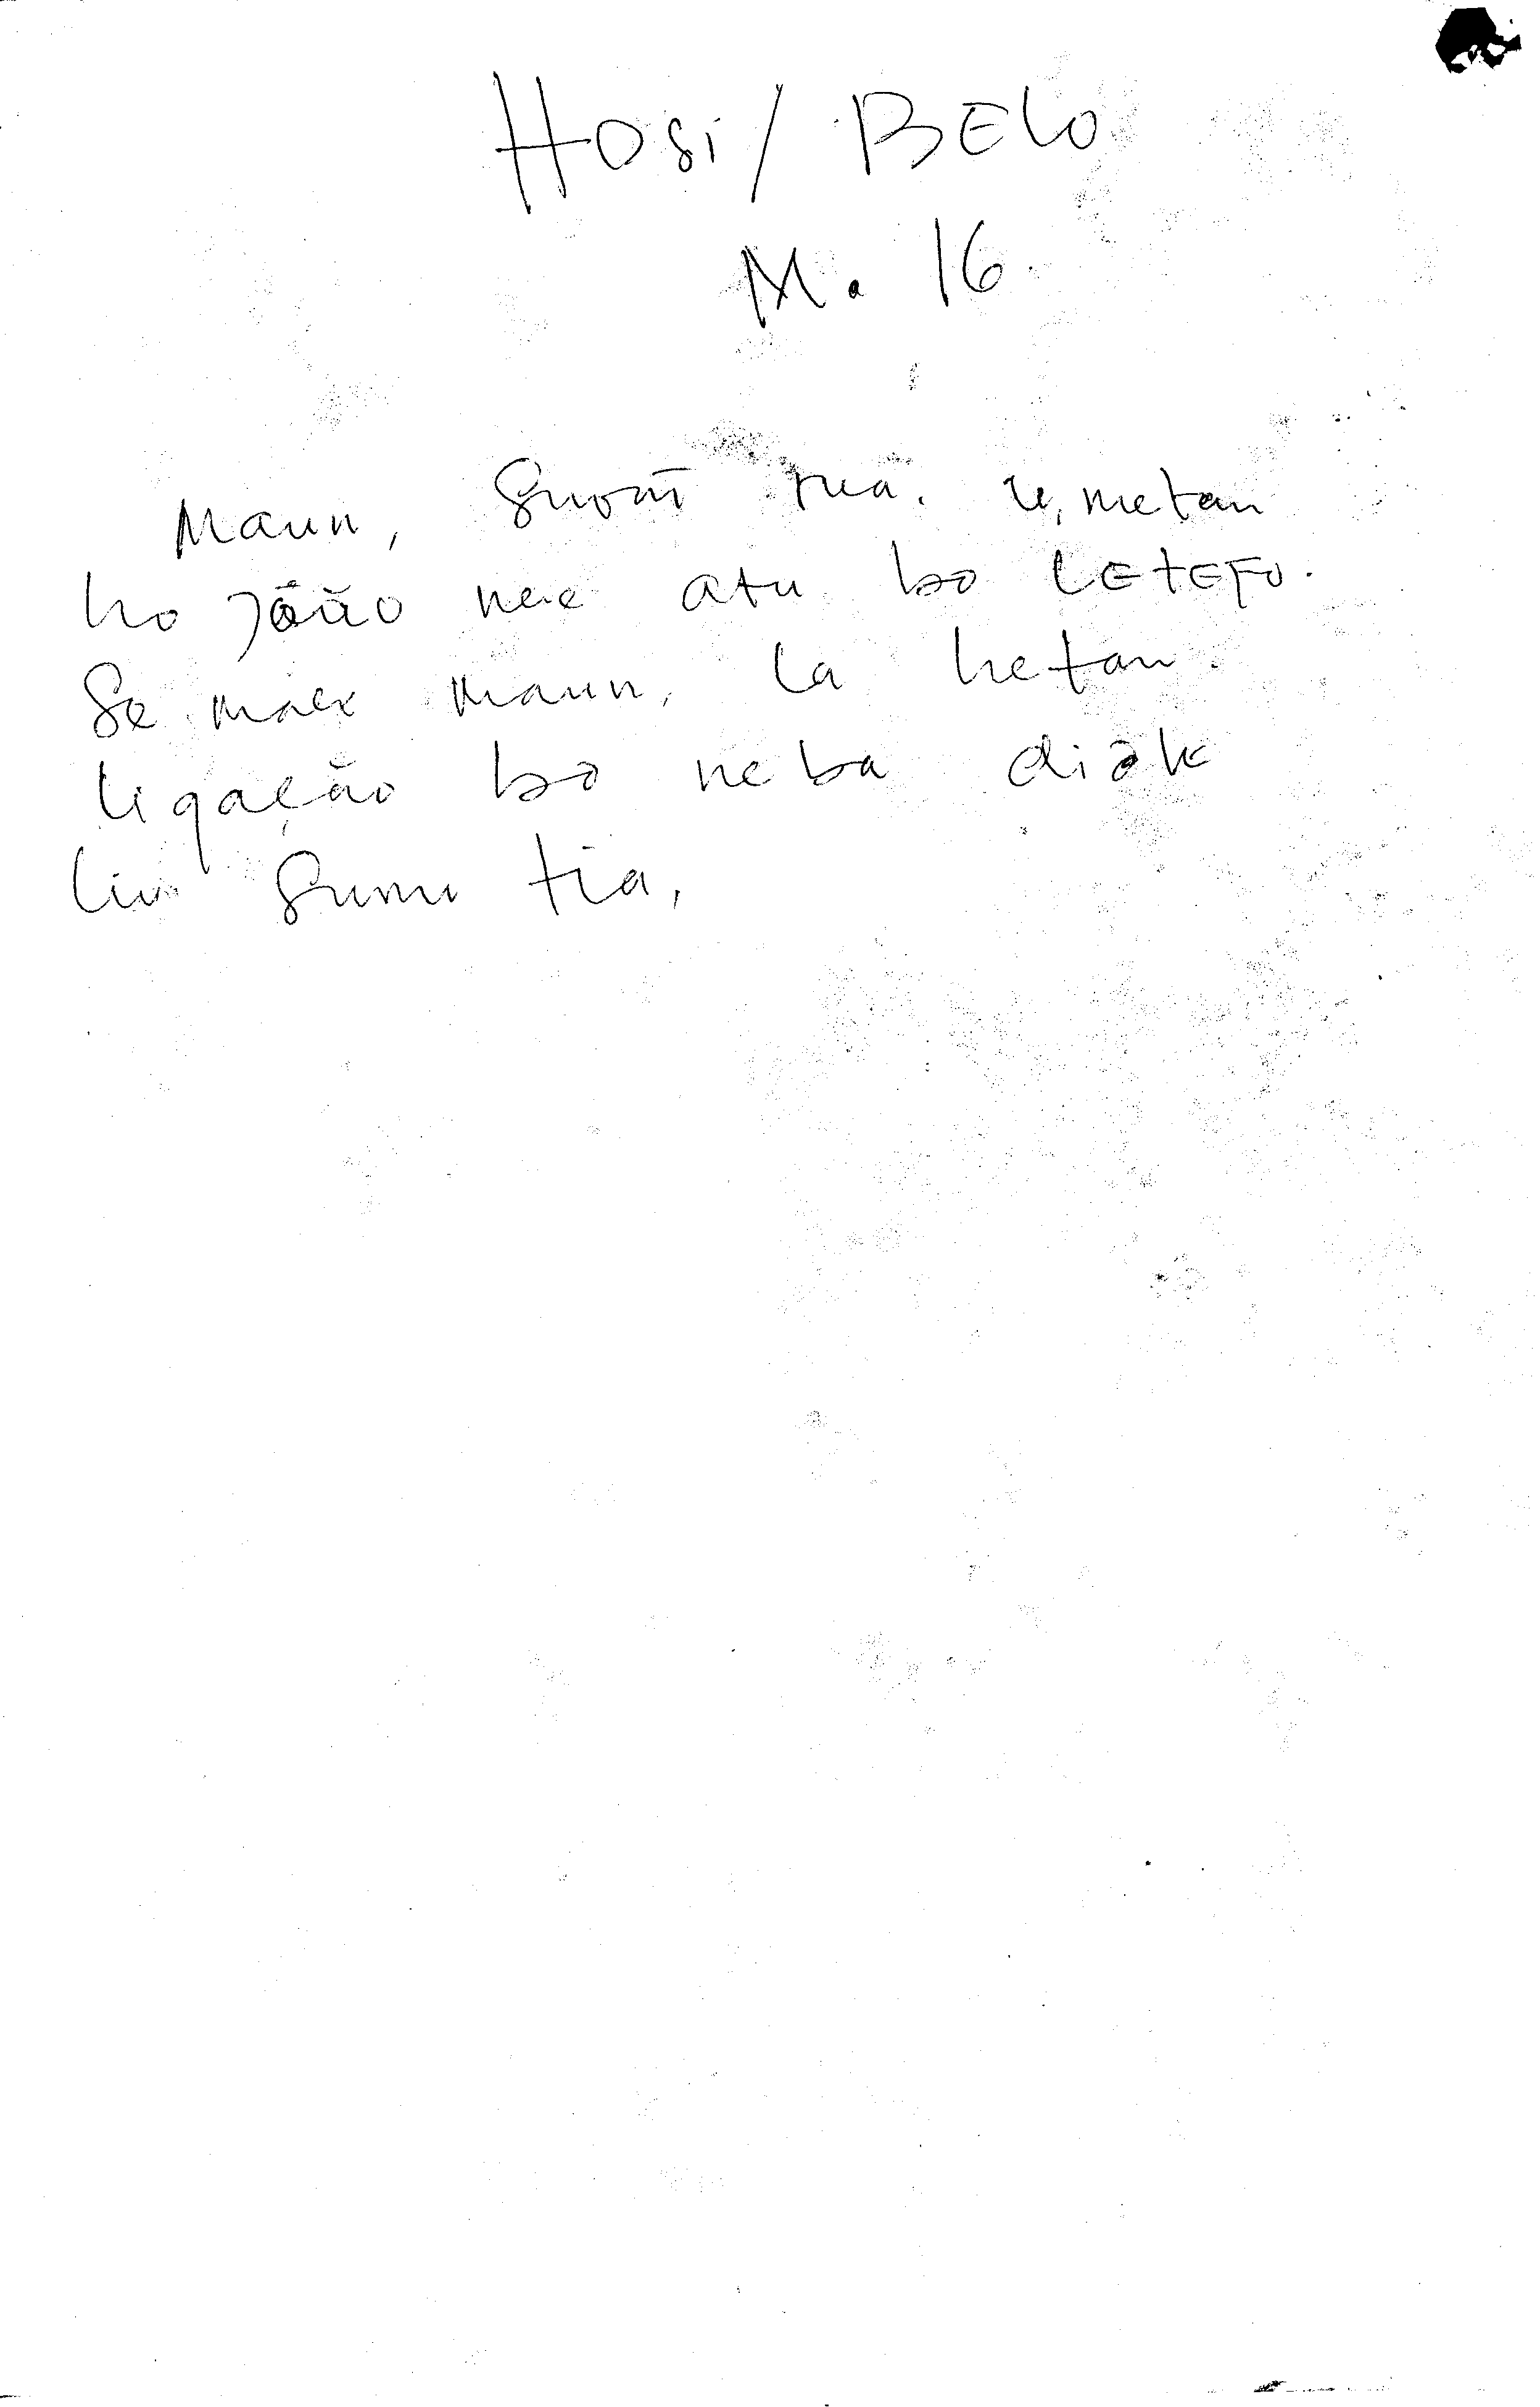 HOSI / BELO
M. 16.
Maun, surat rua. U, metan
ho João nee atu bo LETEFO.
Se maex maun, la hetan
ligação bo neba diak
liu sunu tia,